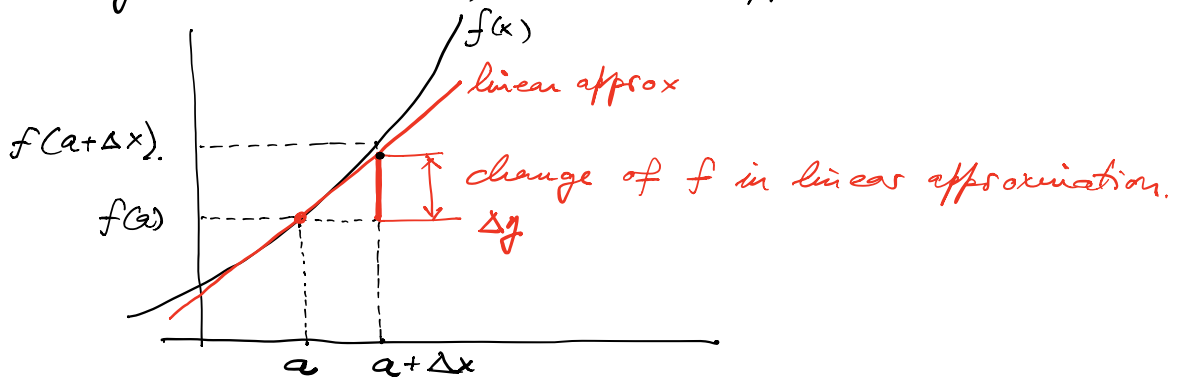 f(x)
linear approx
f(a+Δx).
change of f in linear approximation.
f(a)
Δy
a
a+Δx